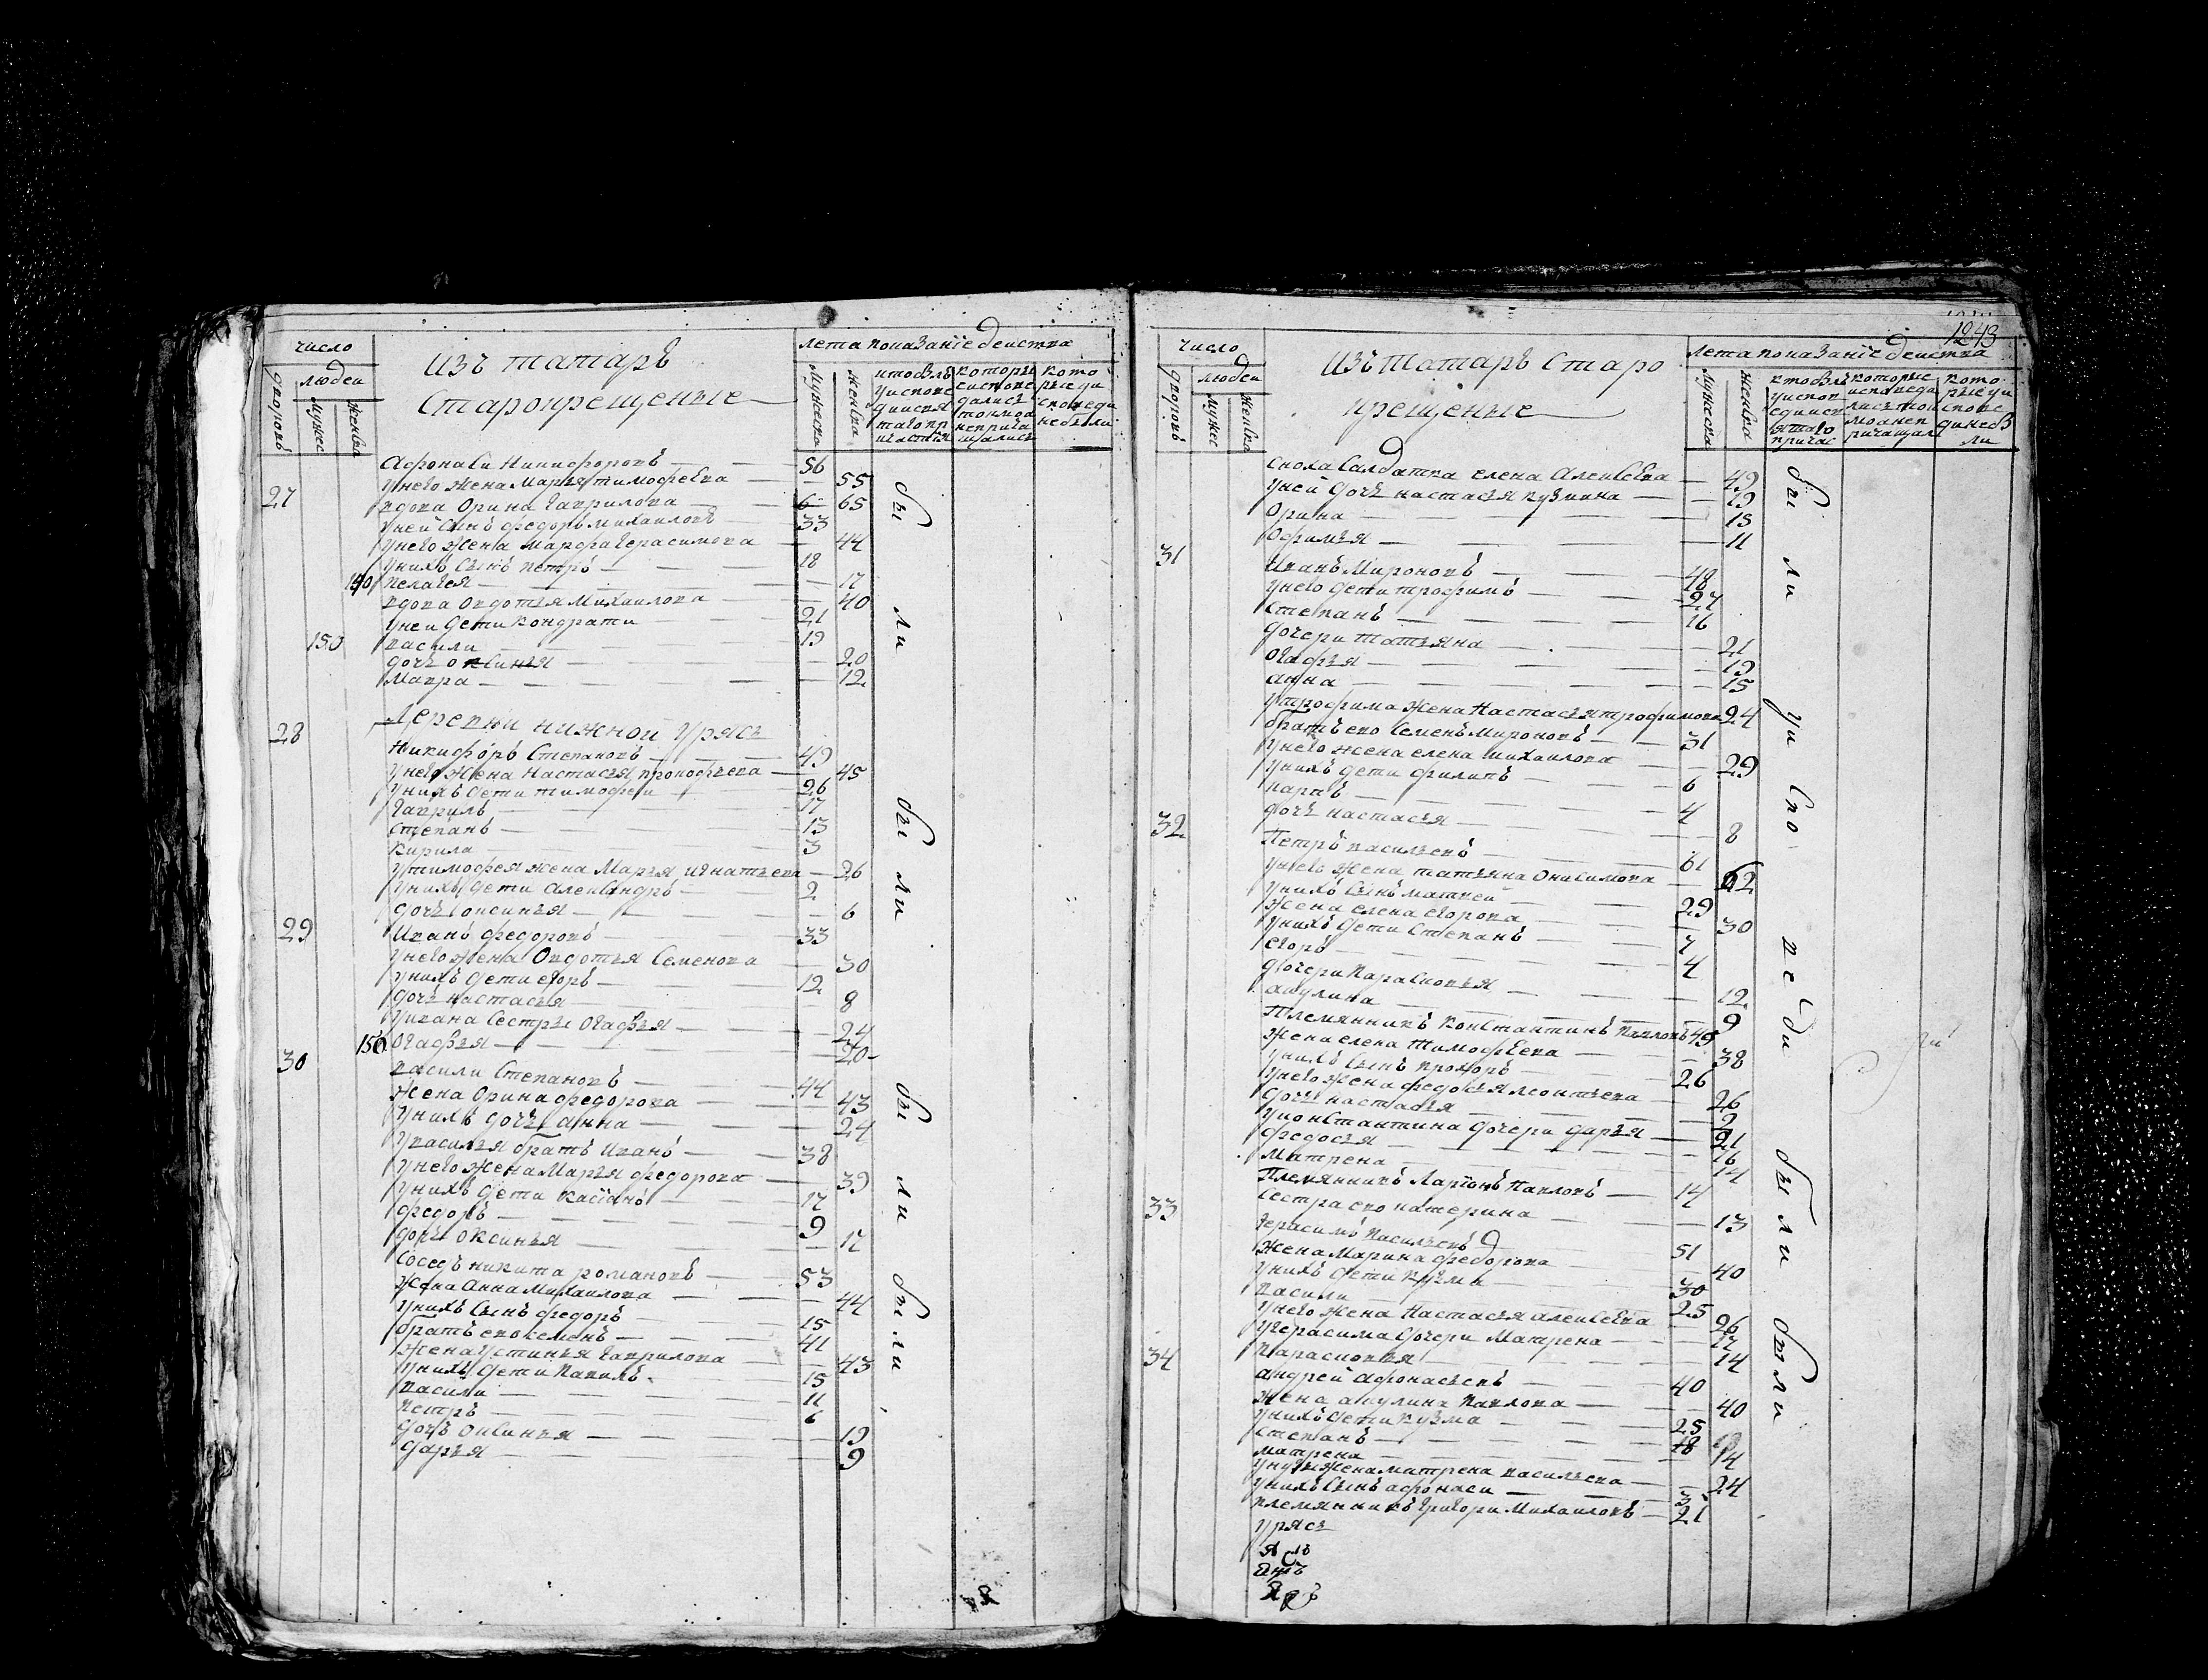 число
людеи
дворовъ
мужес
женска
Изъ татаръ
Старокрещеные
лета показанїе деиства
мужеска
женска
Афонаси Никифоровъ — 56
У него жена Марья тимофѣева — 55
27 вдова Орина гаврилова — 65
У ней Сынъ федоръ михаиловъ 33
У него жена марфа герасимова — 44
У нихъ Сынъ петръ — 18
Пелагея — 17
вдова Овдотья Михаилова — 40
У неи дети Кондрати 21
150 васили 19
дочь оксинья — 20
Мавра — 12
Деревни нижнои Урясь
28
Никифоръ Степановъ — 49
У него жена Настасья прокофьева — 45
У нихъ дети тимофеи — 26
Гаврилъ — 17
Степанъ — 13
Кирила — 3
У тимофея жена Марья игнатьева — 26
У нихъ дети александръ — 2
дочь оксинья — 6
29 Иванъ федоровъ — 33
У него жена Овдотья Семенова — 30
У нихъ дети егоръ — 12
дочь настасья — 8
У ивана Сестры Огафья — 24
Огафья — 20
30 васили Степановъ — 44
жена Орина федорова — 43
У нихъ дочь анна — 24
У василья братъ Иванъ — 38
У него жена Марья федорова — 39
У нихъ дети Касїанъ — 17
федоръ — 9
дочь Оксинья — 17
Соседъ никита романовъ — 53
жена Анна Михаилова — 44
У нихъ Сынъ федоръ — 15
братъ ево семенъ — 41
жена Устинья гаврилова — 43
У нихъ дети Павилъ — 15
васили — 11
петръ — 6
дочь Оксинья — 19
дарья — 9
бы
ли
бы
ли
бы
ли
были
1243
число
людеи
дворовъ
мужес
женска
Изъ татаръ Старо
крещеные
лета показанїе деиства
мужеска
женска
Сноха Салдатка елена Алексѣева — 49
У ней дочь настасья кузмина — 19
Орина — 15
Офимья — 11
31 Иванъ Мироновъ — 48
У него дети трофимъ — 27
Степанъ — 16
дочери татьяна — 21
Огафья — 19
анна — 15
У трофима жена Настасья трофимова 24
братъ ево Семенъ Мироновъ — 31
У него жена елена михаилова — 29
У нихъ дети филипъ — 6
карпъ — 4
дочь настасья — 8
32 Петръ васильевъ — 61
У него жена татьяна Онисимова — 62
У нихъ Сынъ матвей — 29
жена елена егорова — 30
У нихъ дети Степанъ — 7
егоръ — 4
дочери парасковья — 12
акулина — 9
Племянникъ Константинъ Павловъ 49
жена елена тимофѣева — 38
У нихъ Сынъ прохоръ — 26
У него жена федосья леонтьева — 26
дочь настасья — 2
У константина дочери дарья — 21
федосья — 16
Матрена — 14
Племянникъ Ларїонъ Павловъ — 14
Сестра ево катерина — 13
33 герасимъ васильевъ — 51
жена Марина федорова — 40
У нихъ дети кузма — 30
васили — 25
У него жена Настасья алексѣева — 26
У герасима дочери Матрена — 17
Парасковья — 14
34 андрей афонасьевъ — 40
жена акулина Павлова — 40
У нихъ дети кузма — 25
Степанъ — 18
матрена — 14
У кузмы жена матрена васильева — 24
У нихъ Сынъ афонаси — 3
племянникъ григори Михаиловъ — 21
Урясь
бы
ли
уи
Спо
ве
ди
были
были